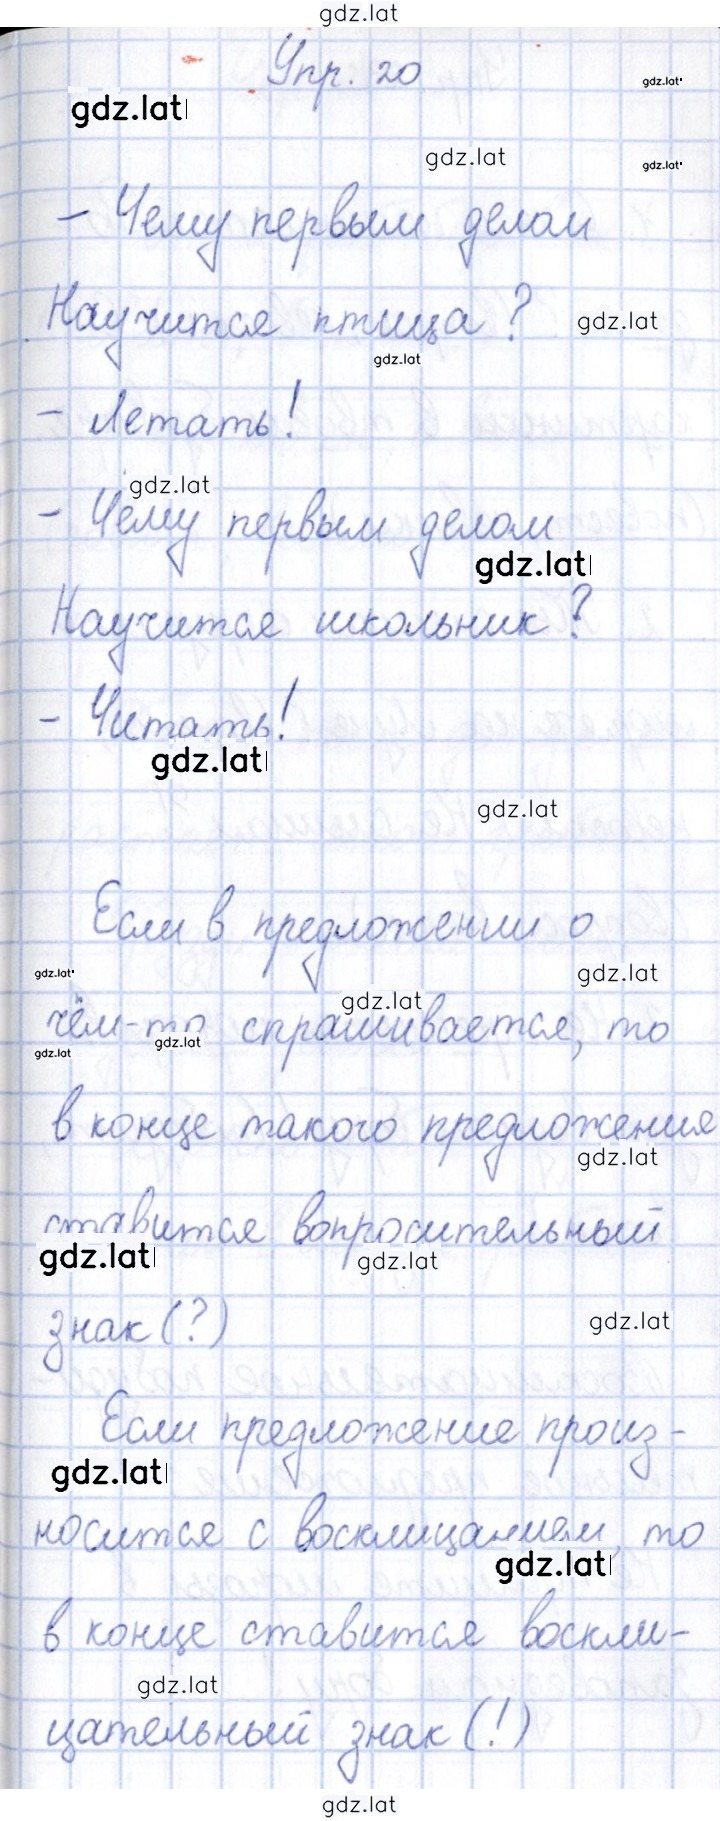 gdz.lat
Упр. 20
gdz.lat
gdz.lat
gdz.lat
gdz.lat
– Чему первым делом
Научится птица?
gdz.lat
gdz.lat
– Летать!
gdz.lat
– Чему первым делом
gdz.lat
Научится школьник?
– Читать!
gdz.lat
gdz.lat
Если в предложении о
gdz.lat
gdz.lat
gdz.lat
чём-то спрашивается, то
gdz.lat
gdz.lat
в конце такого предложения
gdz.lat
ставится вопросительный
gdz.lat
gdz.lat
знак (?)
gdz.lat
Если предложение произ-
gdz.lat
носится с восклицанием, то
gdz.lat
в конце ставится воскли-
gdz.lat
цательный знак (!)
gdz.lat